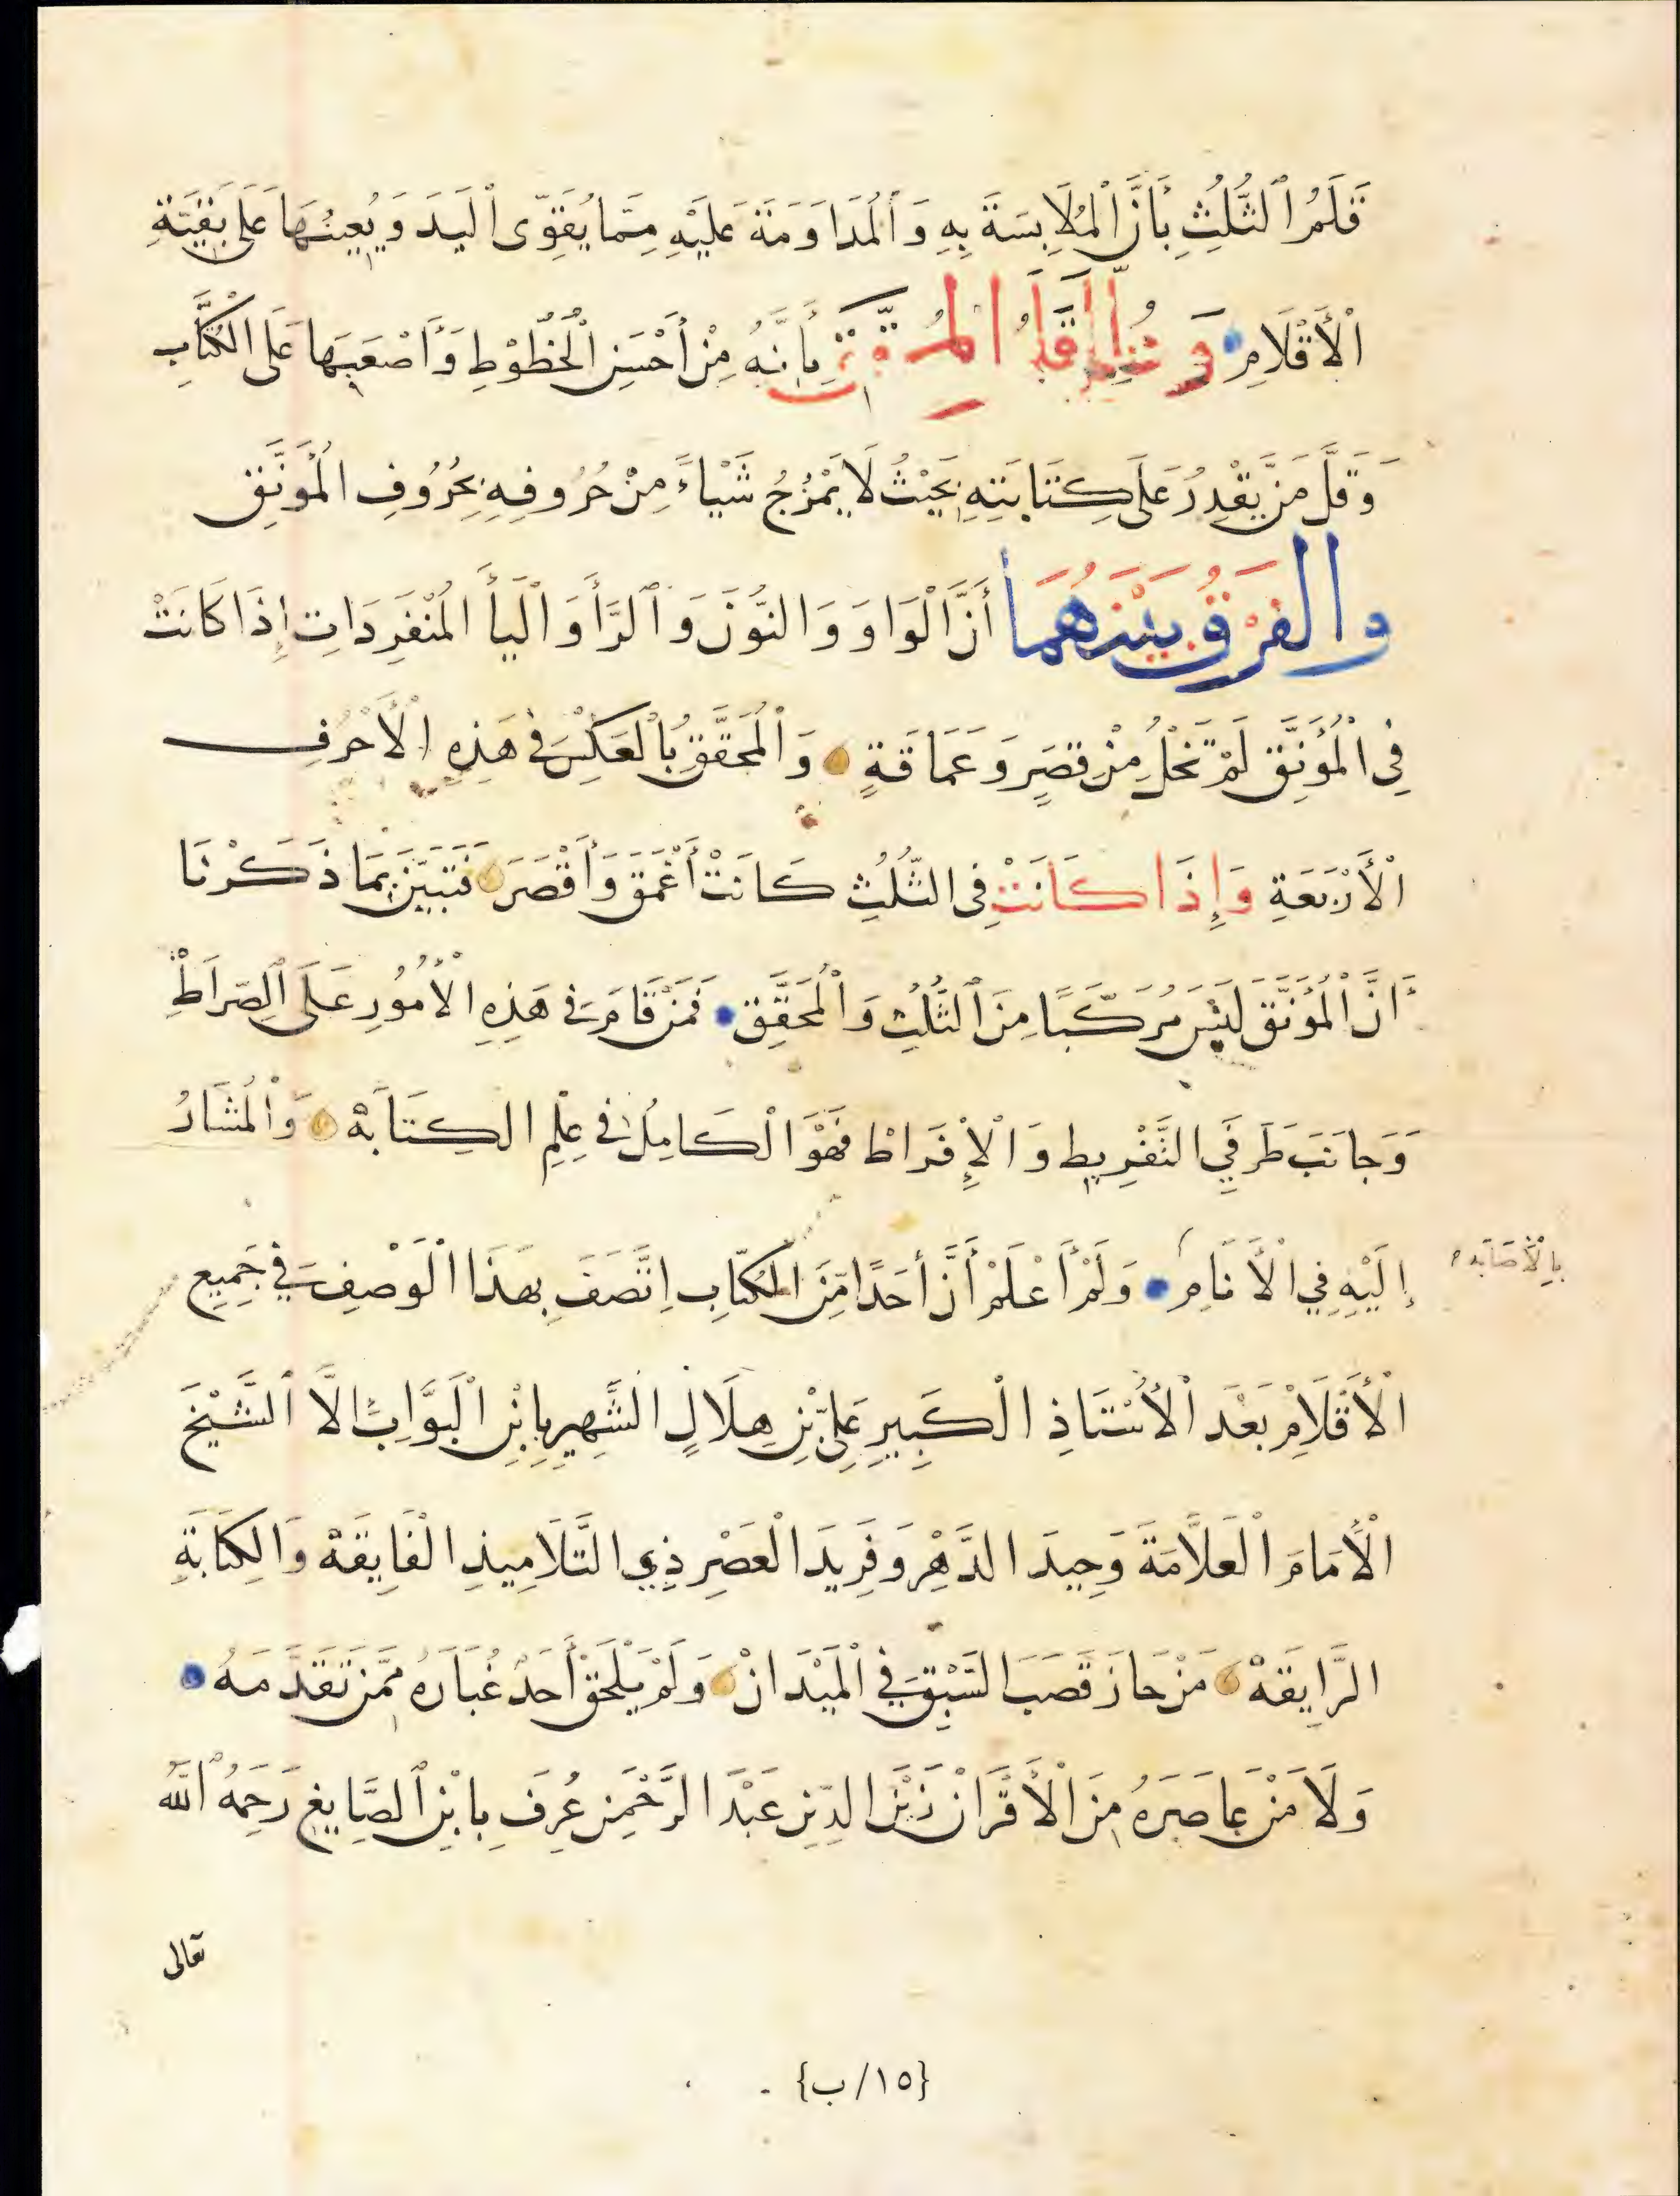 قَلَمُ الثُّلُثِ بِأَنَّ الْمُلَابِسَةَ بِهِ وَالْمُدَاوَمَةَ عَلَيْهِ مِمَّا يُقَوِّى الْيَدَ وَيُعِينُهَا عَلَى بَقِيَّةِ
الْأَقْلَامِ بِأَنَّهُ مِنْ أَحْسَنِ الْخُطُوْطِ وَأَصْعَبِهَا عَلَى الْكُتَّابِ
وَقَلَّ مَنْ يَقْدِرُ عَلَى كِتَابَتِهِ بِحَيْثُ لَا يَمْزُجُ شَيْاءً مِنْ حُرُوفِهِ بِحُرُوفِ الْمُونَّقِ
والفَرْقُ بَيْنَهُمَا أَنَّ الْوَاوَ وَالنُّوْنَ وَالرَّأَ وَالْيأَ الْمُنْفَرِدَاتِ إِذَا كَانَتْ
فِى الْمُؤَنَّقِ لَمْ تَخْلُ مِنْ قِصَرٍ وَعَمَاقَةٍ وَالْمُحَقَّقِ بِالْعَكْسِ فِى هَذِهِ الْأَحْرُفِ
الْأَرْبَعَةِ وَإِذَا كَانَتْ فِى الثُّلُثِ كَانَتْ أَعْمَقَ وَأَقْصَرَ فَتَبَيَّنَ بِمَا ذَكَرْنَا
أَنَّ الْمُؤَنَّقَ لَيْسَ مُرَكَّبًا مِنَ الثُّلُثِ وَالْمُحَقَّقِ فَمَنْ قَامَ فِى هَذِهِ الْأُمُورِ عَلَى الصِّرَاطِ
وَجَانَبَ طَرَفَيِ التَّفْرِيطِ وَالْإِفْرَاطْ فَهْوَ الْكَامِلُ فِى عِلْمِ الكِتَابَهْ وَالْمُشَارُ
إِلَيْهِ فِي الْأَنَامِ وَلَمْ أَعْلَمْ أَنَّ أَحَدًا مِنَ الْكُتَّابِ اِتَّصَفَ بِهَذَا الْوَصْفِ فِي جَمِيعِ
بِالْأَصَابَه
الْأَقْلَامِ بَعْدَ الْأُسْتَاذِ الْكَبِيرِ عَلِىِّ بْنِ هِلَالٍ الشَّهِيرِ بِابْنِ الْبَوَّابِ إلَّا الشَّيْخَ
الْأَمَامَ الْعَلَّامَةَ وَحِيدَ الدَّهْرِ وَفَرِيدَ الْعَصْرِ ذِي التَّلَامِيذِ الْفَايِقَهْ وَالْكِتَابَةِ
الرَّايِقَهْ مَنْ حَازَ قَصَبَ السَّبْقِ فِي الْمَيْدَانْ وَلَمْ يَلْحَقْ أَحَدٌ غُبَارَهُ مِمَّنْ تَقَدَّمَهُ
وَلَا مَنْ عَاصَرَهُ مِنَ الْأَقْرَانْ زَيْنَ الدِّيْنِ عَبْدَ الرَّحْمَنِ عُرِفَ بِابْنِ الصَّايِغِ رَحِمَهُ اللَّهُ
تعالى
{١٥/ب}